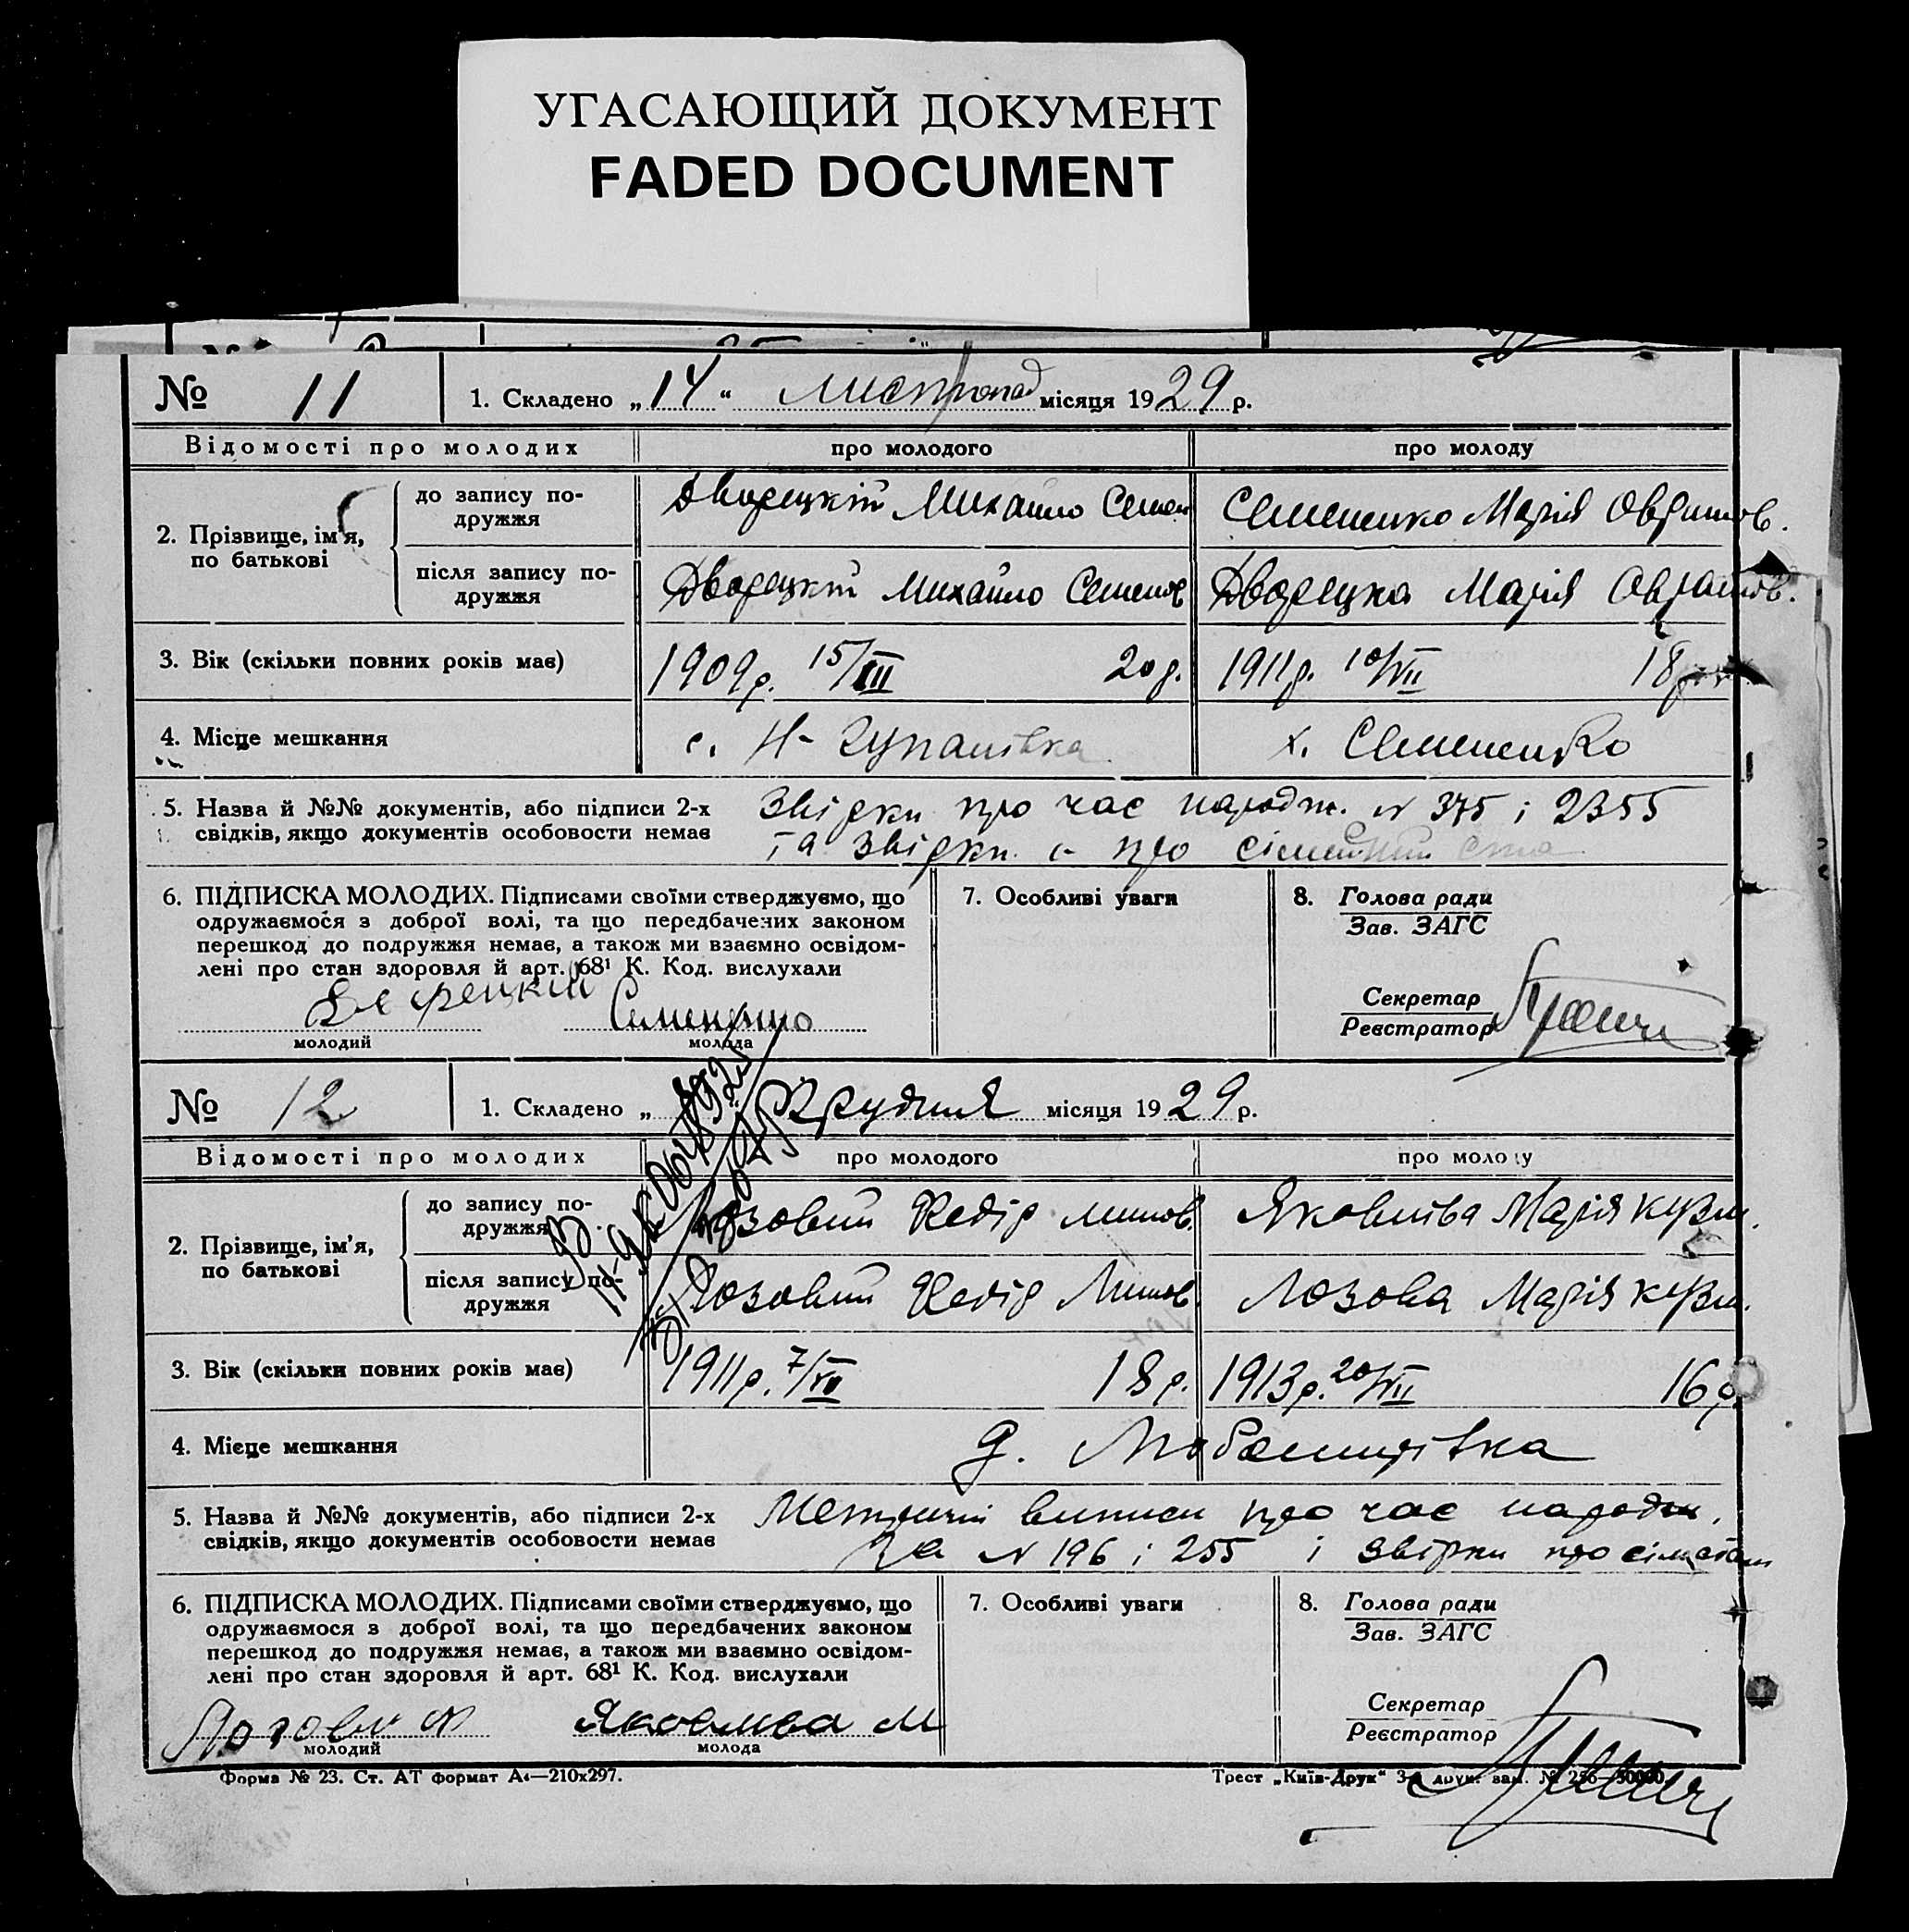 УГАСАЮЩИЙ ДОКУМЕНТ
FADED DOCUMENT
№ 11
1. Складено „14“ листопад місяця 1929 р.
Відомості про молодих
про молодого
про молоду
2. Прізвище, ім'я, по батькові
до запису подружжя
Дворецкій Михайло Семен
Семененко Марія Оврамов.
після запису подружжя
Дворецкій Михайло Семенов
Дворецка Марія Аврамов.
3. Вік (скільки повних років має)
1909р. 15/III 20р.
1911р. 10/VII 18р.
4. Місце мешкання
с. Н-
х. Семененко
5. Назва й №№ документів, або підписи 2-х
свідків, якщо документів особовости немає
Звірки про час народж. N 375 і 2355
та звірки про сімейний
6. ПІДПИСКА МОЛОДИХ. Підписами своїми стверджуємо, що
одружаємося з доброї волі, та що передбачених законом
перешкод до подружжя немає, а також ми взаємно освідом-
лені про стан здоровля й арт. 68¹ К. Код. вислухали
молодий
молода
7. Особливі уваги
8. Голова ради
Зав. ЗАГС
Секретар
Реєстратор
№ 12
1. Складено „ Грудня місяця 1929 р.
Відомості про молодих
про молодого
про молоду
2. Прізвище, ім'я, по батькові
до запису подружжя
Лозовий Федір Минов.
Яковлева Марія Кузм.
після запису подружжя
Лозовий Федір Минов.
Лозова Марія Кузм.
3. Вік (скільки повних років має)
1911р. 18р.
1913р. 20/VII 16р.
4. Місце мешкання
5. Назва й №№ документів, або підписи 2-х
свідків, якщо документів особовости немає
Метричні виписи про час народж.
за N 196 і 255 і звірки про
6. ПІДПИСКА МОЛОДИХ. Підписами своїми стверджуємо, що
одружаємося з доброї волі, та що передбачених законом
перешкод до подружжя немає, а також ми взаємно освідом-
лені про стан здоровля й арт. 68¹ К. Код. вислухали
Яковлева М
молодий
молода
7. Особливі уваги
8. Голова ради
Зав. ЗАГС
Секретар
Реєстратор
Форма № 23. Ст. АТ формат А4—210х297.
Трест „Київ-Друк“ 3-